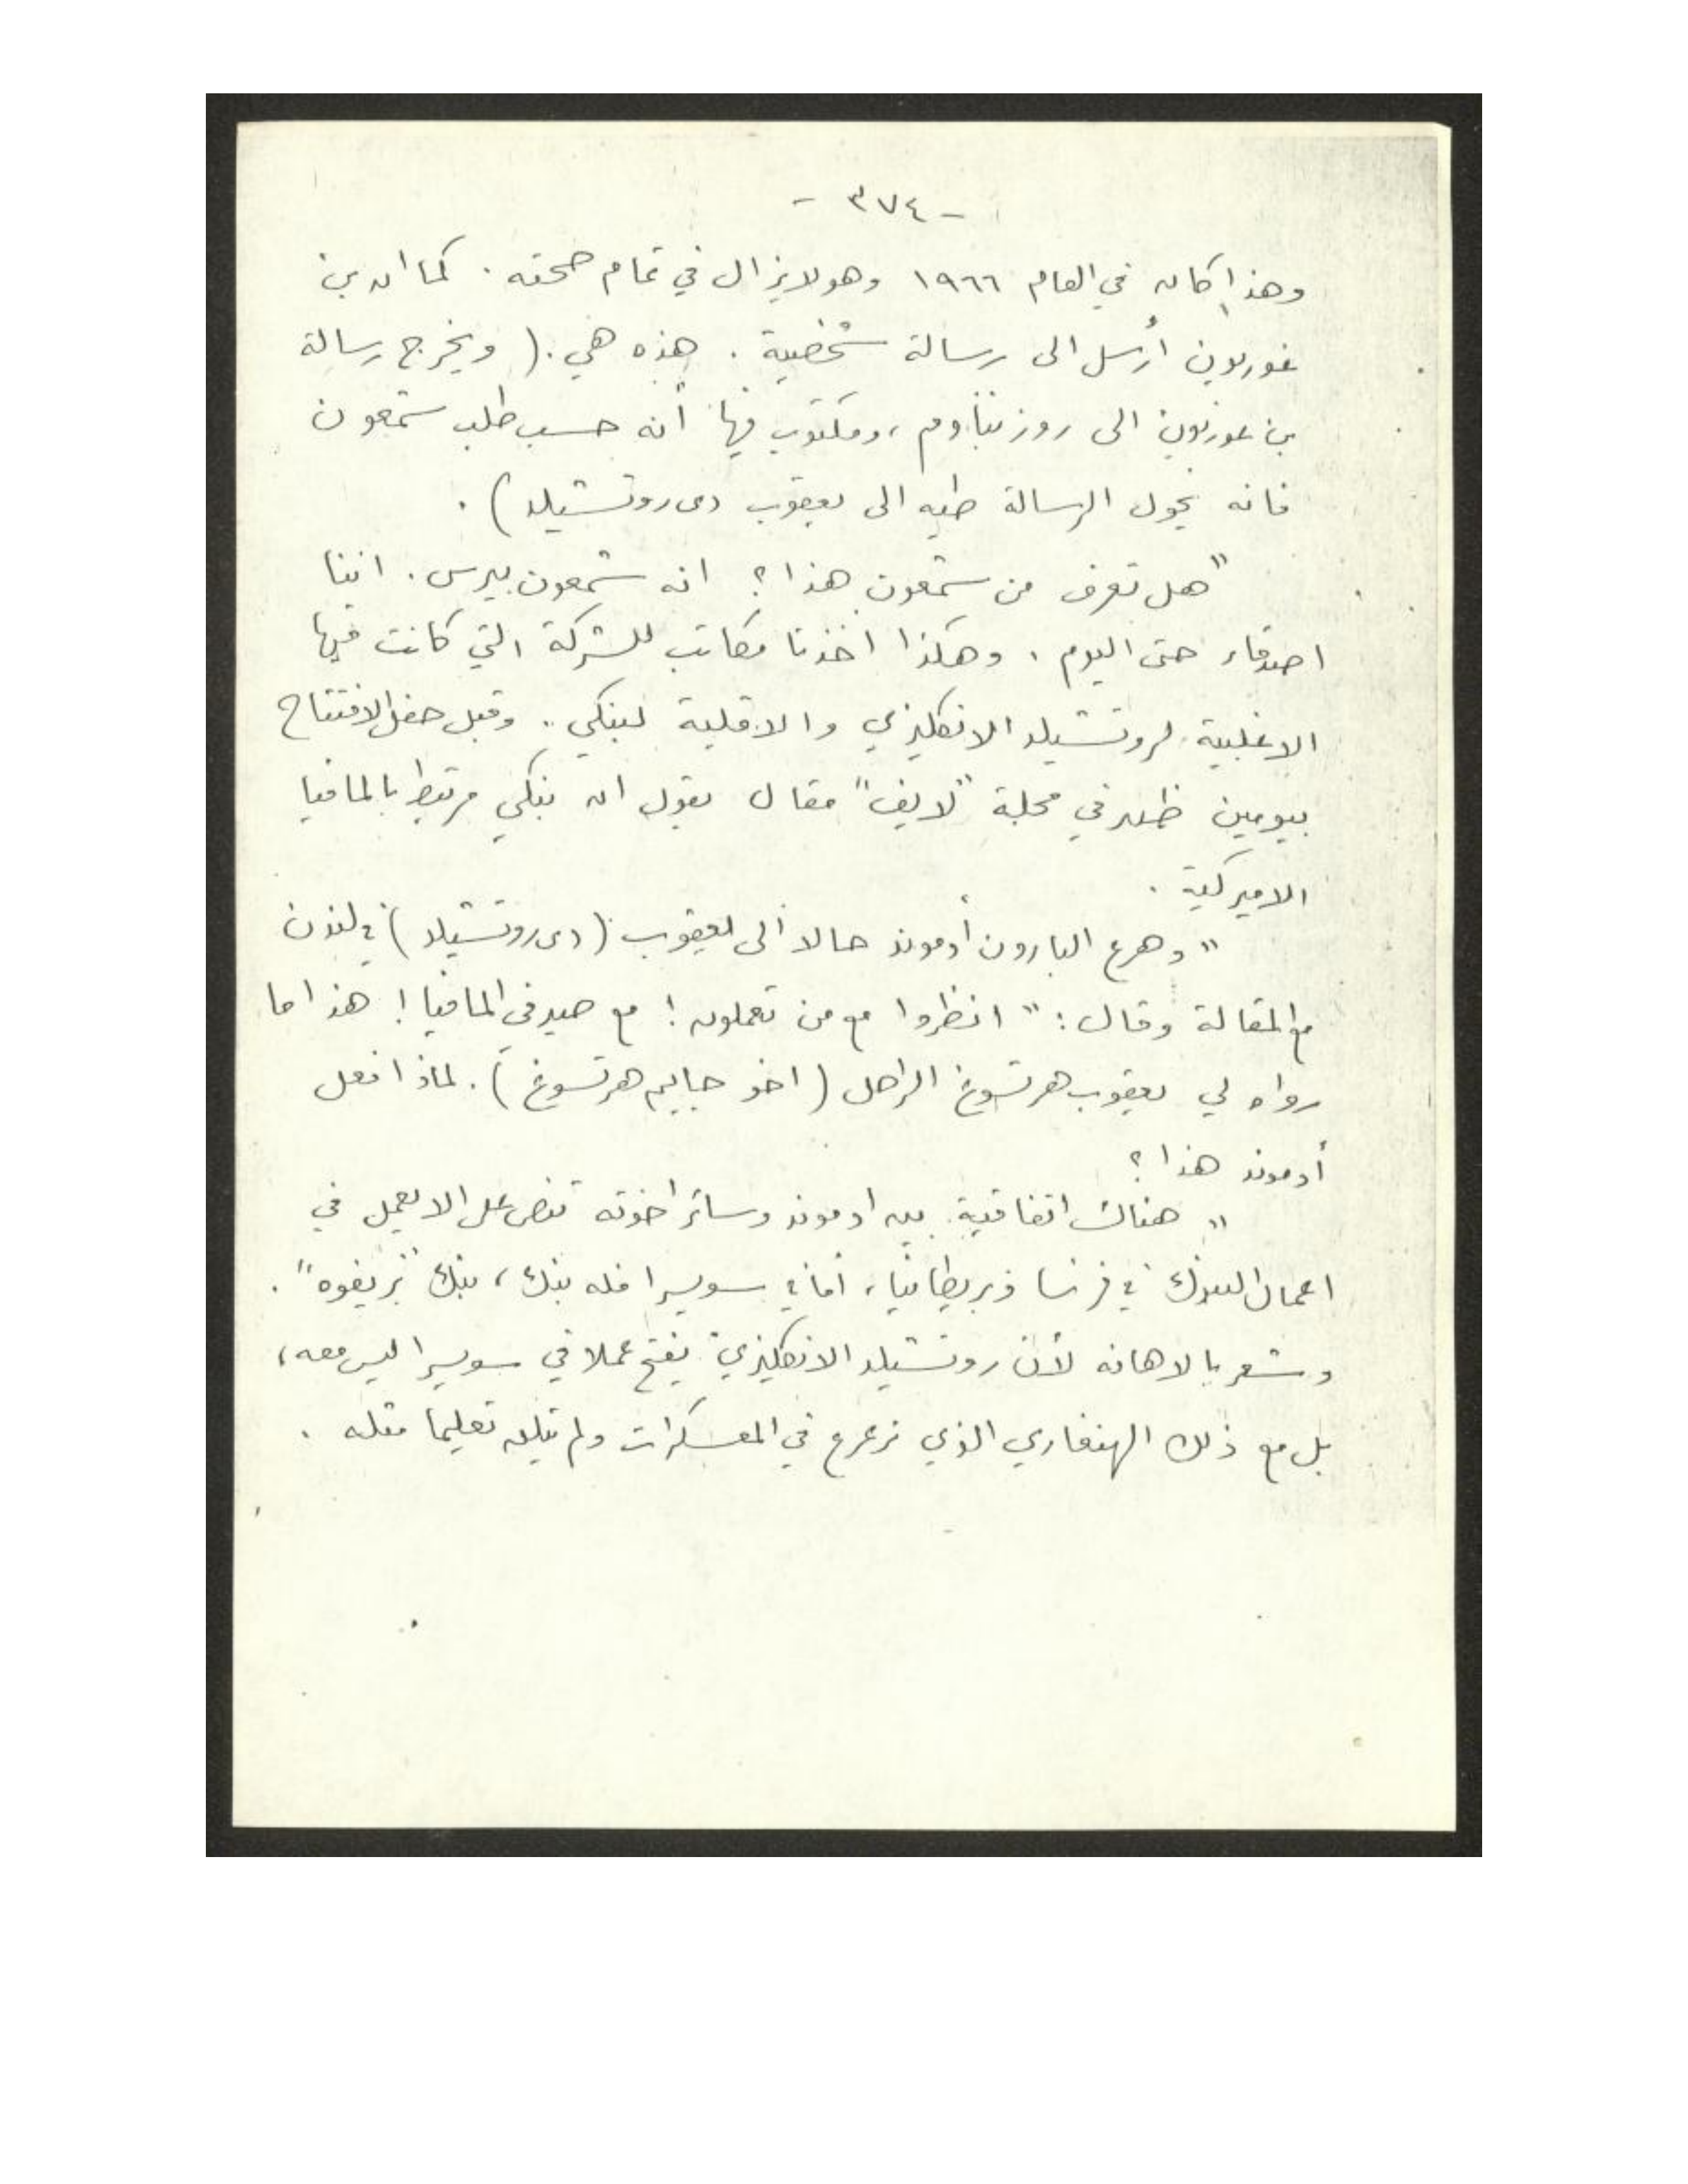 - ٣٧٤ -
وهذا كان في العام ١٩٦٦ وهو لا يزال في تمام صحته . كما ان بن
غوريون أرسل الى رسالة شخصية . هذه هي . ( ويخرج رسالة
بن غوريون الى روزنباوم ، ومكتوب فيها أنه حسب طلب شمعون
فانه يحول الرسالة طيه الى يعقوب دى روتشيلد ) .
" هل تعرف من شمعون هذا ؟ انه شمعون بيرس . اننا
اصدقاء حتى اليوم . وهكذا اخذنا مكاتب للشركة التي كانت فيها
الاغلبية لروتشيلد الانكليزي والاقلية لبنكي . وقبل حفل الافتتاح
بيومين ظهر في مجلة " لايف " مقال يقول ان بنكي مرتبط بالمافيا
الاميركية .
" وهرع البارون أدموند حالا الى يعقوب ( دى روتشيلد ) في لندن
مع المقالة وقال : " انظروا مع من تعملون ! مع صيرفي المافيا ! هذا ما
رواه لي يعقوب هرتسوغ الراحل ( اخو حاييم هرتسوغ ) . لماذا فعل
أدموند هذا ؟
" هناك اتفاقية بين ادموند وسائر اخوته تنص على الا يعمل في
اعمال البنوك في فرنسا وبريطانيا ، أما في سويسرا فله بنك ، بنك " بريفوه " .
وشعر بالاهانه لأن روتشيلد الانكليزي يفتح عملا في سويسرا ليس معه ،
بل مع ذلك الهنغاري الذي ترعرع في المعسكرات ولم يتلق تعليما مثله .